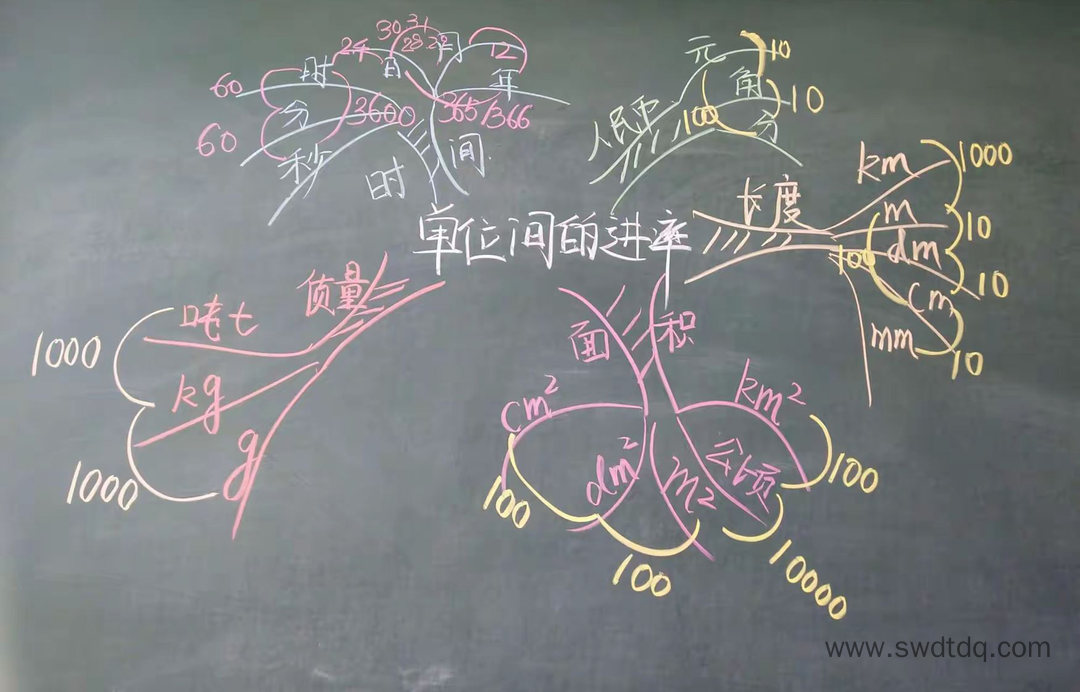 单位间的进率
时间
年
月
日
时
分
秒
12
30 31
28 29
24
365/366
60
3600
60
人民币
元
角
分
10
10
100
长度
km
m
dm
cm
mm
1000
10
10
10
100
面积
km²
公顷
m²
dm²
cm²
100
10000
100
100
质量
吨t
kg
g
1000
1000
www.swdtdq.com